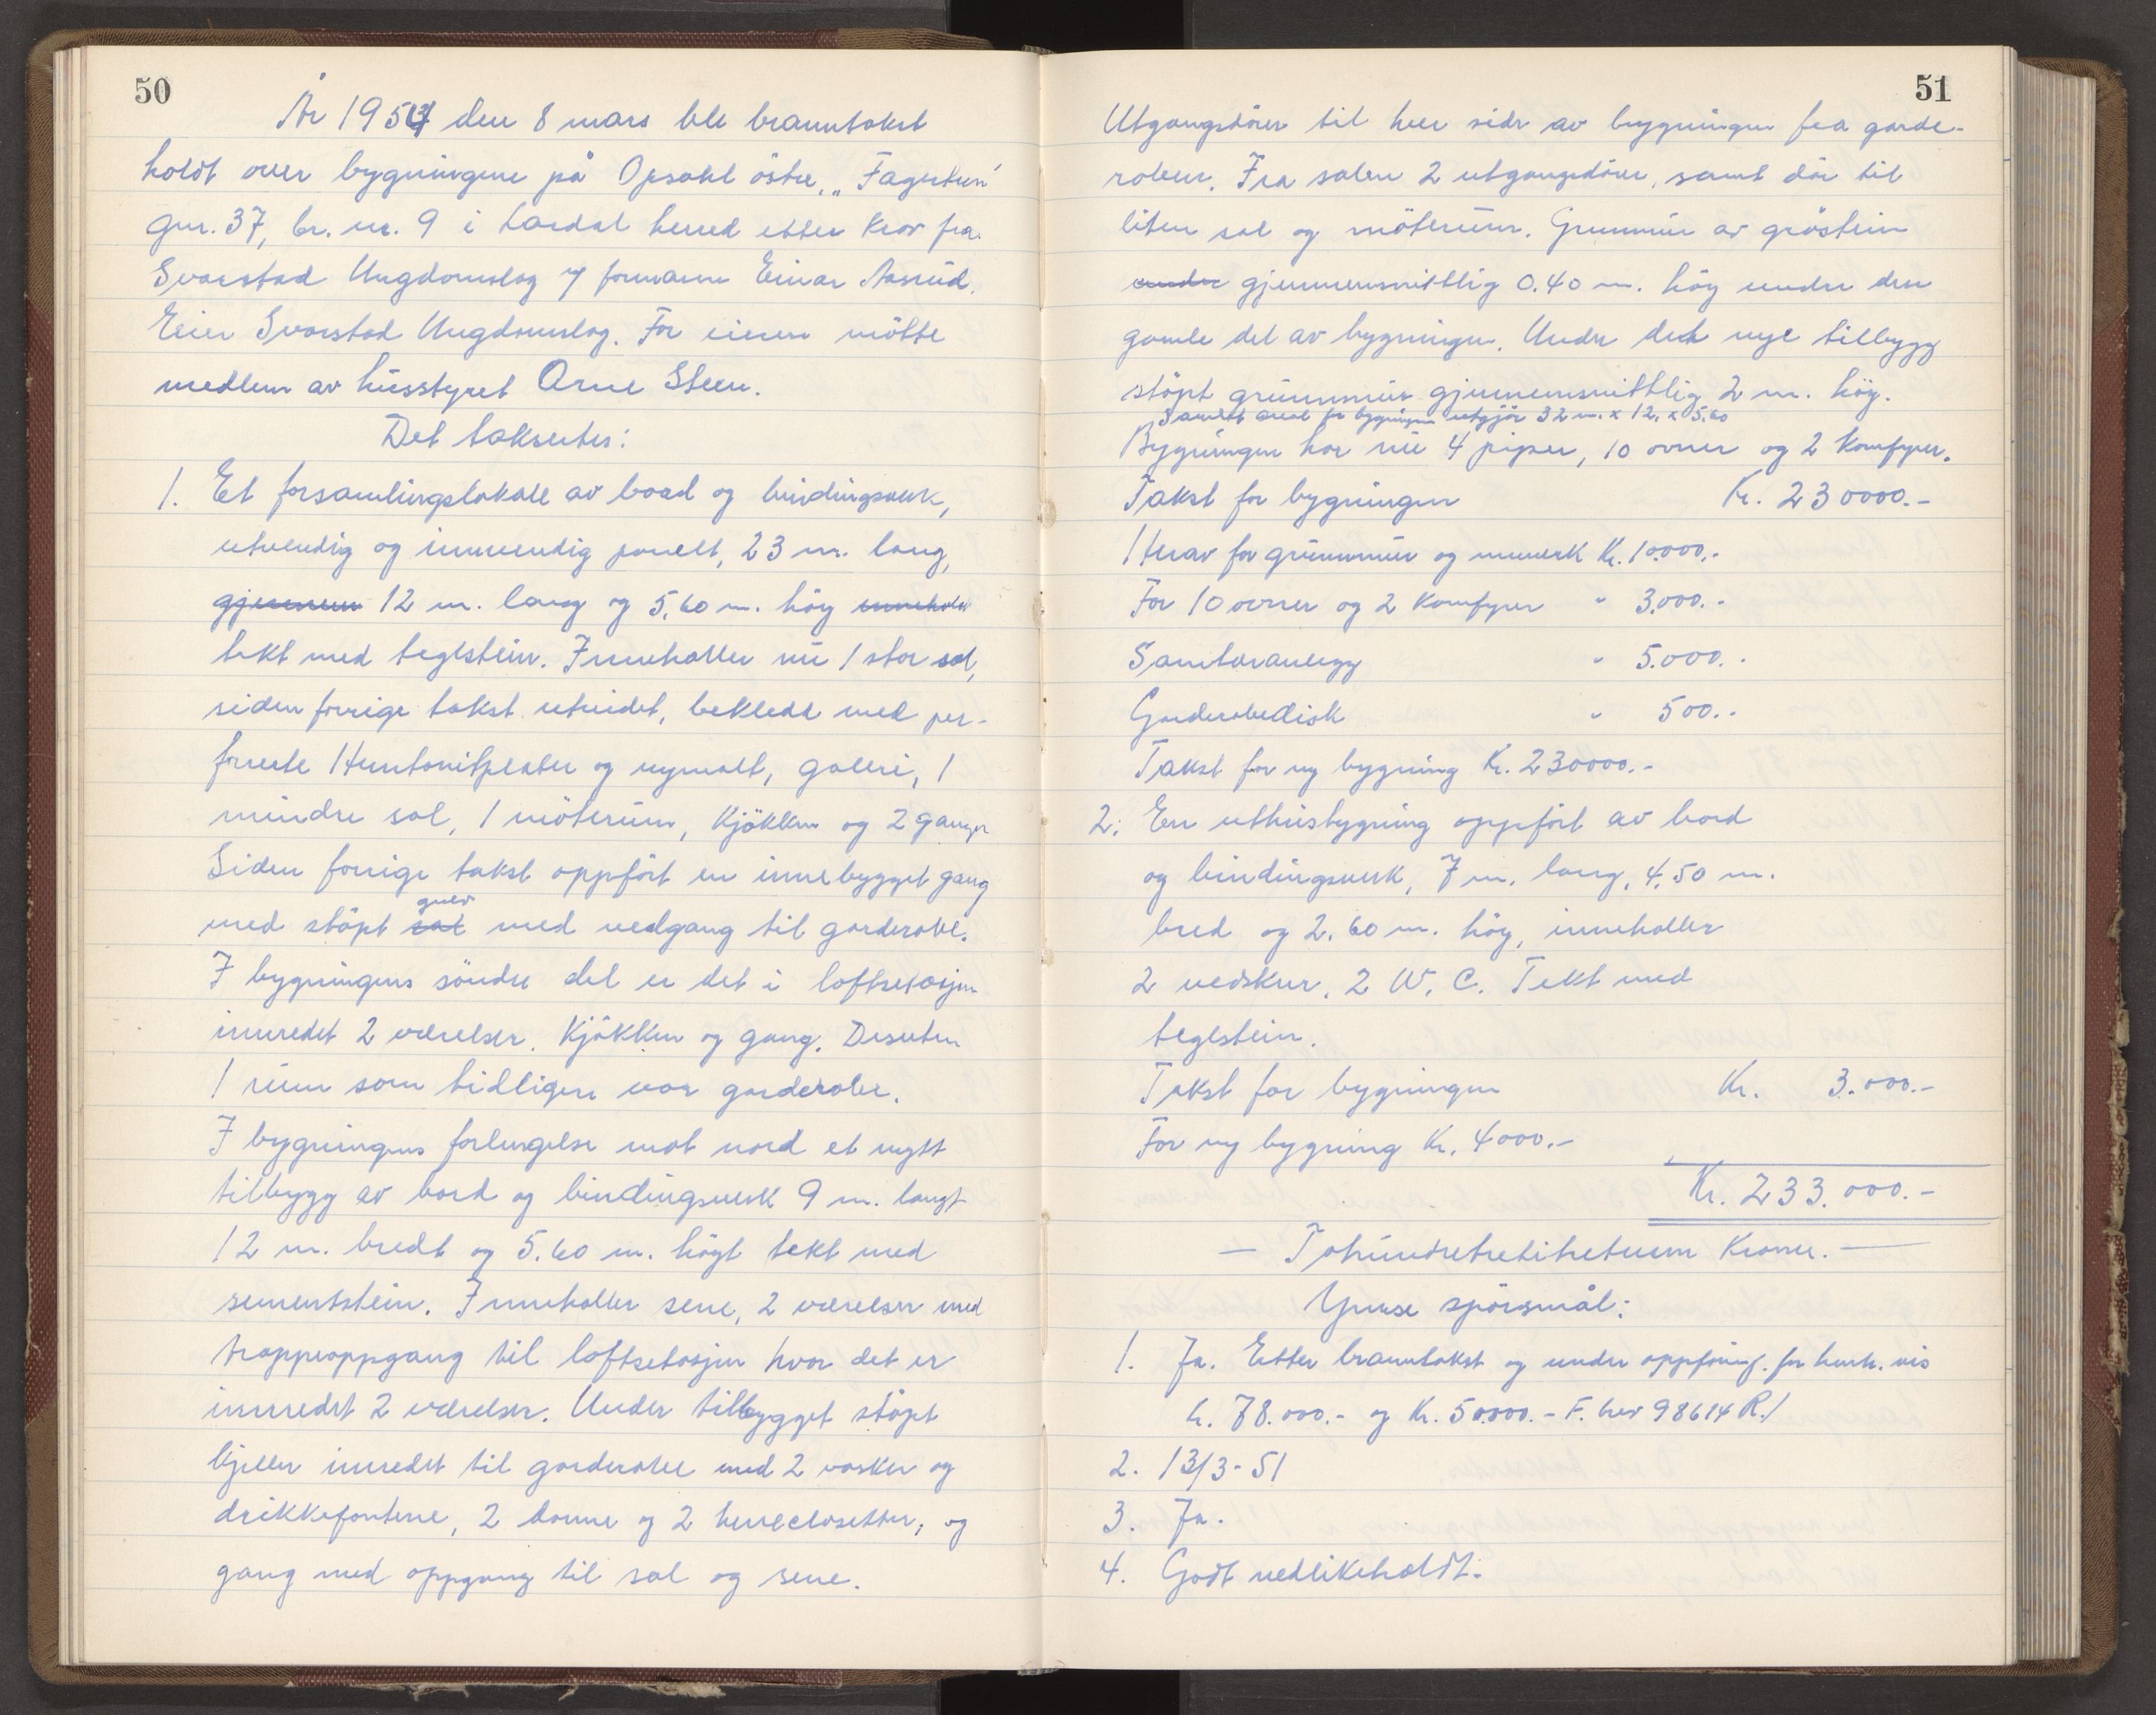 50
År 1954 den 8 mars ble branntakst
holdt over bygningene på Opsahl östre, „Fagertun"
gnr. 37, br. nr. 9 i Lardal herred etter krav fra
Svarstad Ungdomslag v/ formann Einar Aasrud.
Eier Svarstad Ungdomslag. For eieren mötte
medlem av husstyret Arne Steen.
Det takseres:
1. Et forsamlingslokale av bord og bindingsverk,
utvendig og innvendig panelt, 23 m. lang,
gjennem 12 m. lang og 5,60 m. höy inneholde
tekt med teglstein. Inneholder nu 1 stor sal,
siden forrige takst utvidet, bekledt med per-
forerte Huntonitplater og nymalt, galleri, 1
mindre sal, 1 möterum, kjökken og 2 ganger
Siden forrige takst oppfört en innebygget gang
med stöpt sal gulv med nedgang til garderobe.
I bygningens söndre del er det i loftsetasjen
innredet 2 værelser, kjökken og gang. Desuten
1 rum som tidligere var garderober.
I bygningens forlengelse mot nord et nytt
tilbygg av bord og bindingsverk 9 m. langt
12 m. bredt og 5.60 m. höyt tekt med
sementstein. Inneholder sene, 2 værelser med
trappeoppgang til loftsetasjen hvor det er
innredet 2 værelser. Under tilbygget stöpt
kjeller innredet til garderobe med 2 vasker og
drikkefontene, 2 dame og 2 herreclosetter, og
gang med oppgang til sal og sene.
51
Utgangsdörer til hver side av bygningen fra garde-
roben. Fra salen 2 utgangsdörer, samt dör til
liten sal og möterum. Grunnmur av gråstein
under gjennemsnittlig 0.40 m. höy under den
gamle del av bygningen. Under det nye tilbygg
stöpt grunnmur gjennemsnittlig 2 m. höy.
Samlet areal for bygningen utgjör 32 m. x 12. x 5.60
Bygningen har nu 4 piper, 10 ovner og 2 komfyrer.
Takst for bygningen Kr. 230000.-
Herav for grunnmur og murverk Kr. 10.000.-
For 10 ovner og 2 komfyrer " 3.000.-
Sanitæranlegg " 5.000.-
Garderobedisk " 500.-
Takst for ny bygning Kr. 230000.-
2. En uthusbygning oppfört av bord
og bindingsverk, 7 m. lang, 4.50 m.
bred og 2.60 m. höy, inneholder
2 vedskur, 2 W.C. Tekt med
teglstein.
Takst for bygningen Kr. 3.000.-
For ny bygning Kr. 4000.-
Kr. 233.000.-
— Tohundretrettitretusen Kroner. —
Ymse spörsmål:
1. Ja. Etter branntakst og under oppföring. for henh. vis
kr. 78.000.- og Kr. 50.000.- F. 98614 R./
2. 13/3-51
3. Ja.
4. Godt vedlikeholdt.